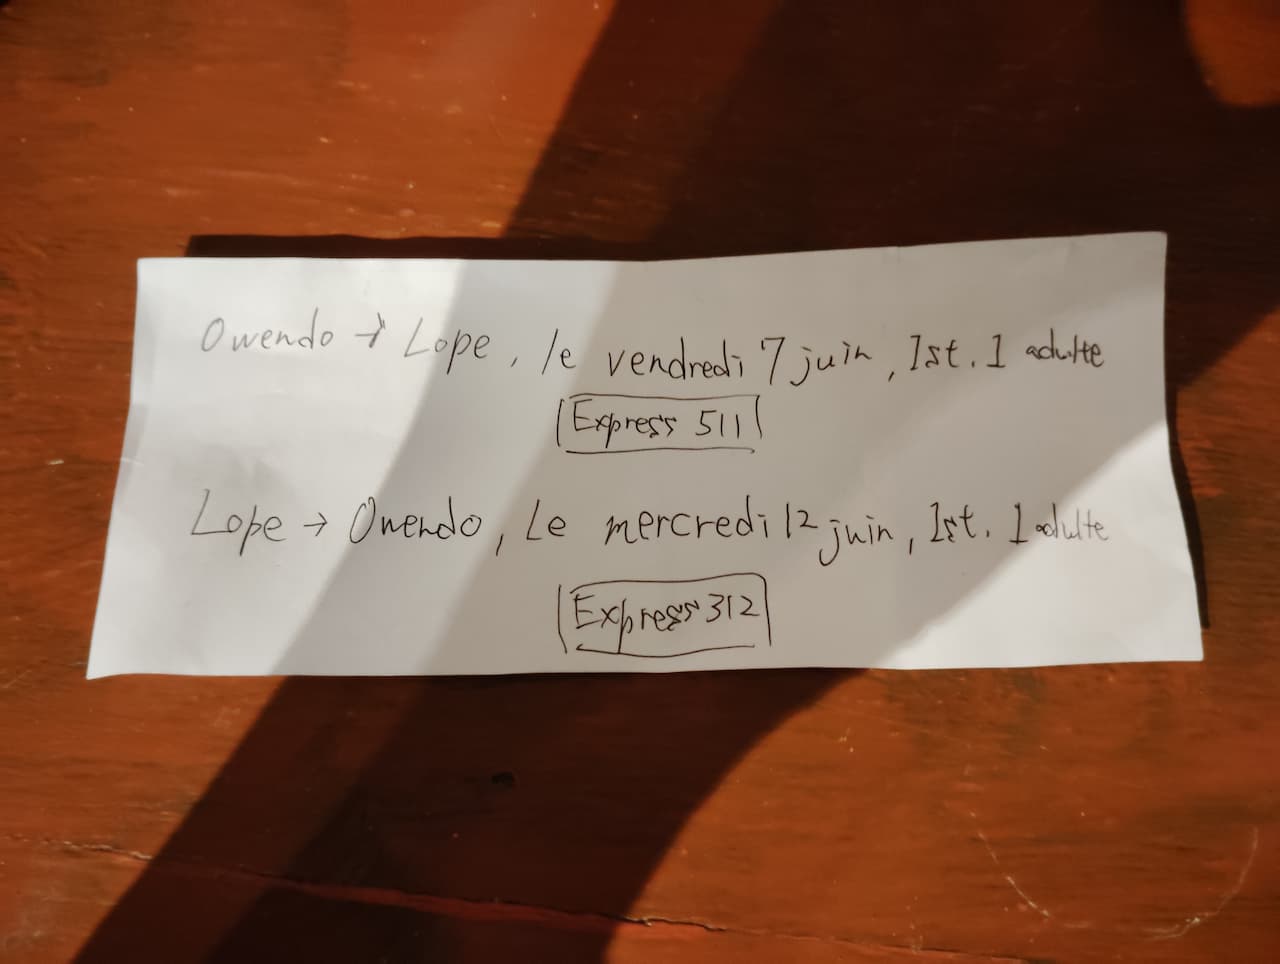 Owendo → Lope, le vendredi 7 juin, 1st. 1 adulte
Express 511
Lope → Owendo, Le mercredi 12 juin, 1st. 1 adulte
Express 312